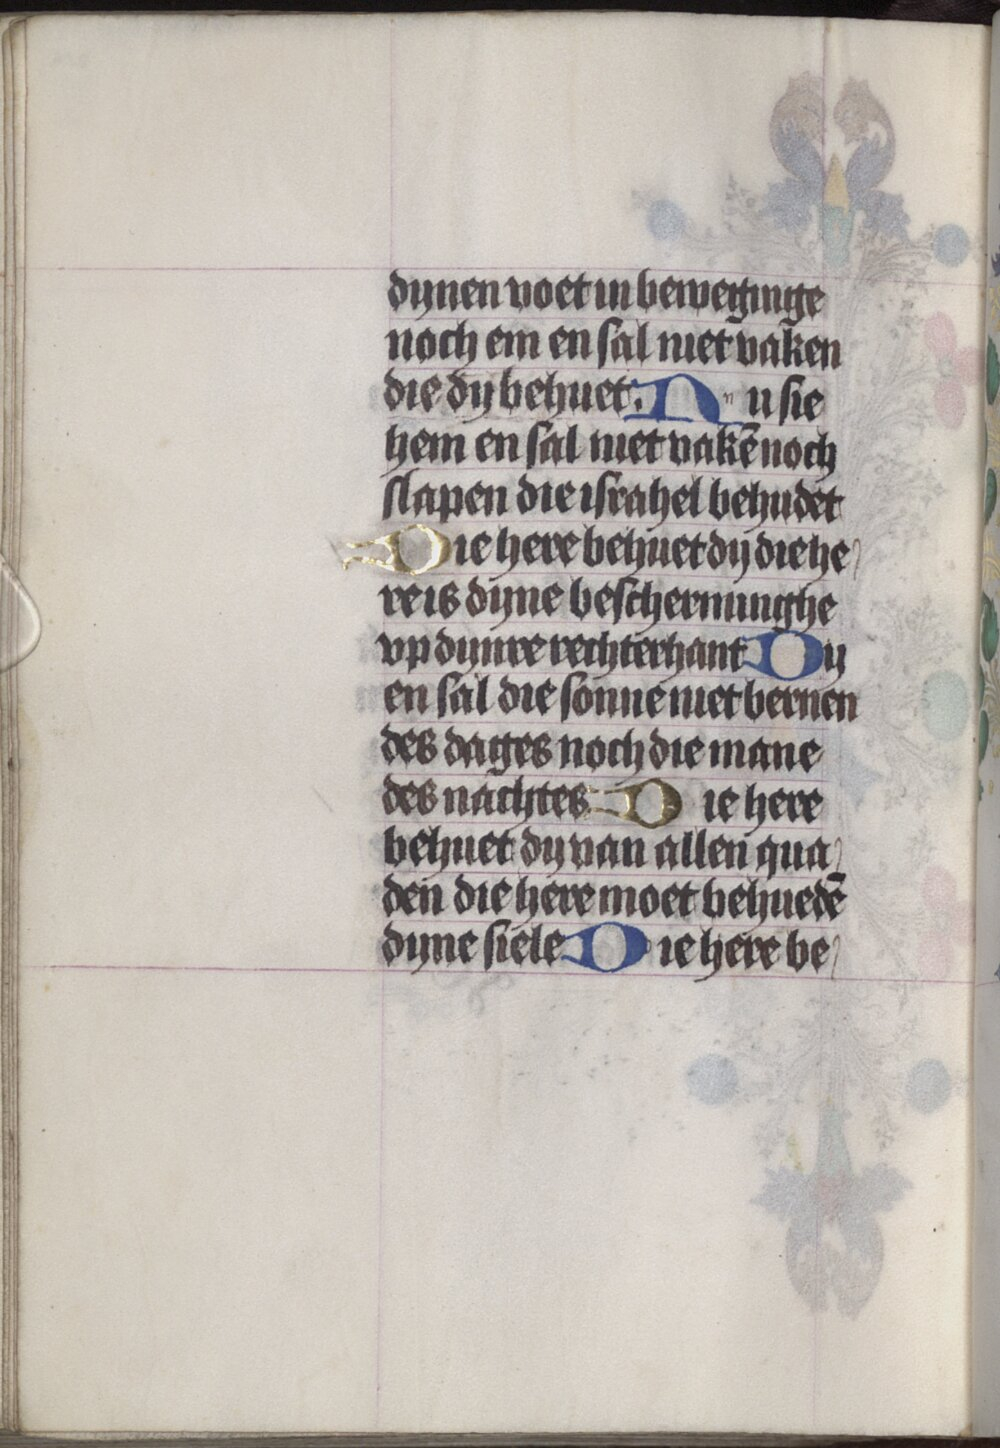 dynen voet in beweginge
noch em en sal niet vaken
die dy behuet. Nu sie
hem en sal niet vakē noch
slapen die israhel behudet
Die here behuet dy die he
re is dyne bescherminghe
vp dynre rechterhant Dy
en sal die sonne niet bernen
des dages noch die mane
des nachtes Die here
behuet dy van allen qua
den die here moet behuedē
dyne siele Die here be